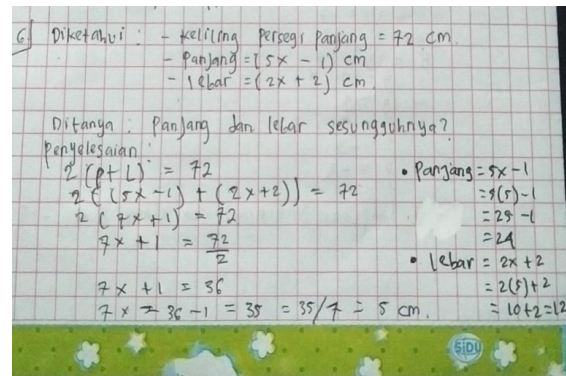 6) Diketahui : - Keliling persegi panjang = 72 cm.
- Panjang = (5x - 1) cm
- lebar = (2x + 2) cm
Ditanya : Panjang dan lebar sesungguhnya?
Penyelesaian :
2 (p+L) = 72
2 ((5x-1) + (2x+2)) = 72
2 (7x+1) = 72
7x + 1 = 72/2
7x + 1 = 36
7x = 36 - 1 = 35 = 35/7 = 5 cm.
• Panjang = 5x - 1
= 5(5) - 1
= 25 - 1
= 24
• lebar = 2x + 2
= 2(5) + 2
= 10 + 2 = 12
SIDU